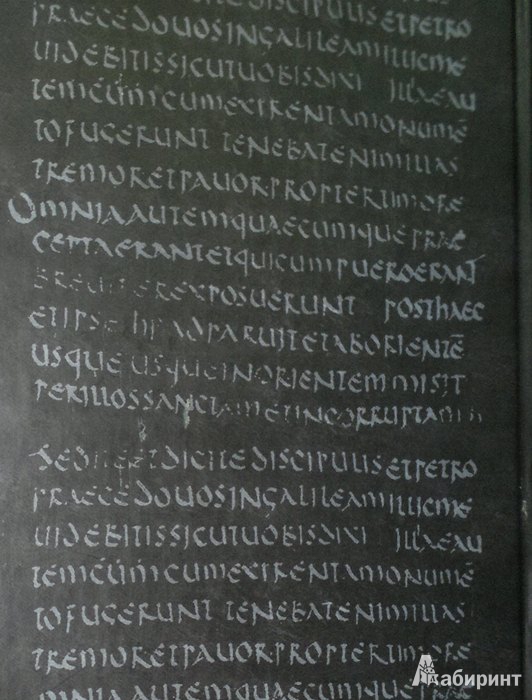 DISCIPULIS ET PETRO
PRAECEDO UOS IN GALILEAM ILLIC ME
UIDEBITIS SICUT UOBIS DIXI ILLAE AU
TEM CUM CUM EXIRENT A MONUMĒ
TO FUGERUNT TENEBAT ENIM ILLAS
TREMOR ET PAUOR PROPTER TIMORE
OMNIA AUTEM QUAECUMQUE PRAE
CEPTA ERANT ET QUI CUM PUERO ERANT
EXPOSUERUNT POSTHAEC
ET IPSE PARUIT ET AB ORIENTĒ
USQUE USQUE IN ORIENTEM MISIT
PER ILLOS SANCTAM ET INCORRUPTAM
SED ET DICITE DISCIPULIS ET PETRO
PRAECEDO UOS IN GALILEAM ILLIC ME
UIDEBITIS SICUT UOBIS DIXI ILLAE AU
TEM CUM CUM EXIRENT A MONUMĒ
TO FUGERUNT TENEBAT ENIM ILLAS
TREMOR ET PAUOR PROPTER TIMORE
OMNIA AUTEM QUAECUMQUE
Лабиринт